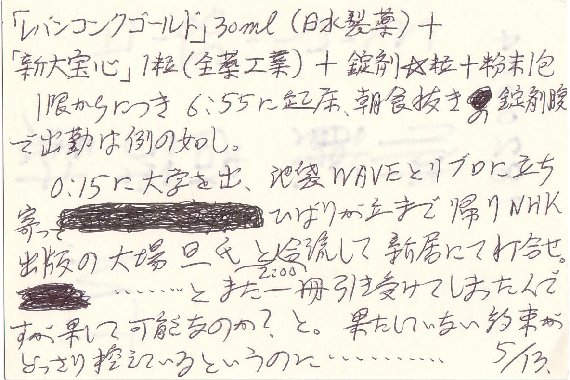 「レバコンクゴールド」30ml(日水製薬)+
「新大宝心」1粒(全薬工業)+錠剤 粒+粉末1包
1限からにつき 6:55に起床、朝食抜き の錠剤腹
で出勤は例の如し。
0:15に大学を出、池袋WAVEとリブロに立ち
寄って ひばりが丘まで帰りNHK
出版の大場旦氏と合流して新居にて打合せ。
2:00
…………とまた一冊引き受けてしまったんで
すが果して可能なのか?、と。果たしていない約束が
どっさり控えているというのに…………
5/13.